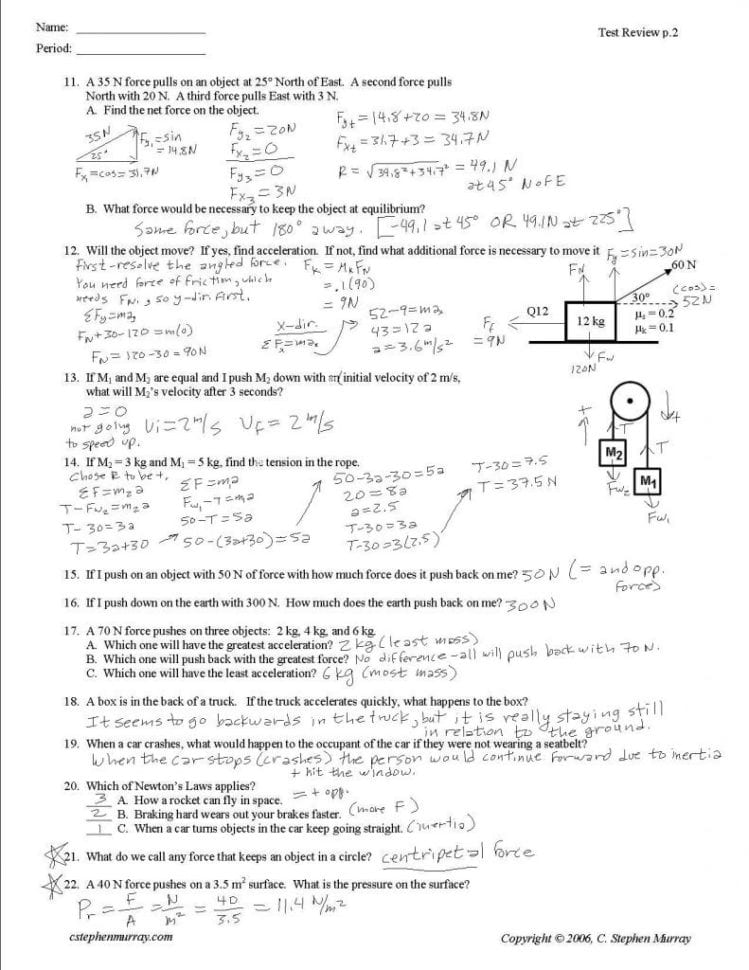 Name: ____________________
Test Review p.2
Period: ____________________
11. A 35 N force pulls on an object at 25° North of East. A second force pulls
North with 20 N. A third force pulls East with 3 N.
A. Find the net force on the object.
35N
25°
Fy₁=sin
=14.8N
Fx=cos=31.7N
Fy₂=20N
Fx₂=0
Fy₃=0
Fx₃=3N
Fyt=14.8+20=34.8N
Fxt=31.7+3=34.7N
R=√34.8²+34.7² =49.1 N
at 45° N of E
B. What force would be necessary to keep the object at equilibrium?
Same force, but 180° away. [-49.1 at 45° OR 49.1N at 225°]
12. Will the object move? If yes, find acceleration. If not, find what additional force is necessary to move it
First-resolve the angled force.
You need force of friction, which
needs FN, so y-dir. first.
ΣFy=may
FN+30-120=m(0)
FN=120-30=90N
Fk=μkFN
=.1(90)
=9N
x-dir.
ΣFx=max
52-9=max
43=12a
a=3.6m/s²
Fy=sin=30N
FN
60 N
30°
(cos)=
52N
Q12
12 kg
μs = 0.2
μk = 0.1
Ff
=9N
Fw
120N
13. If M₁ and M₂ are equal and I push M₂ down with an initial velocity of 2 m/s,
what will M₂'s velocity after 3 seconds?
a=0
not going
to speed up.
Vi=2m/s Vf=2m/s
14. If M₂ = 3 kg and M₁ = 5 kg, find the tension in the rope.
Chose R to be +,
ΣF=m₂a
T-Fw₂=m₂a
T-30=3a
T=3a+30
ΣF=ma
Fw₁-T=ma
50-T=5a
50-(3a+30)=5a
50-3a-30=5a
20=8a
a=2.5
T-30=3a
T-30=3(2.5)
T-30=7.5
T=37.5N
+
T
M₂
Fw₂
+
T
M₁
Fw₁
15. If I push on an object with 50 N of force with how much force does it push back on me? 50N (= and opp.
forces)
16. If I push down on the earth with 300 N. How much does the earth push back on me? 300N
17. A 70 N force pushes on three objects: 2 kg, 4 kg, and 6 kg.
A. Which one will have the greatest acceleration? 2 kg (least mass)
B. Which one will push back with the greatest force? No difference-all will push back with 70 N.
C. Which one will have the least acceleration? 6 kg (most mass)
18. A box is in the back of a truck. If the truck accelerates quickly, what happens to the box?
It seems to go backwards in the truck, but it is really staying still
in relation to the ground.
19. When a car crashes, what would happen to the occupant of the car if they were not wearing a seatbelt?
When the car stops (crashes) the person would continue forward due to inertia
+ hit the window.
20. Which of Newton's Laws applies?
3 A. How a rocket can fly in space. = + opp.
2 B. Braking hard wears out your brakes faster. (more F)
1 C. When a car turns objects in the car keep going straight. (inertia)
21. What do we call any force that keeps an object in a circle? centripetal force
22. A 40 N force pushes on a 3.5 m² surface. What is the pressure on the surface?
Pr = F/A = N/m² = 40/3.5 = 11.4 N/m²
cstephenmurray.com
Copyright © 2006, C. Stephen Murray